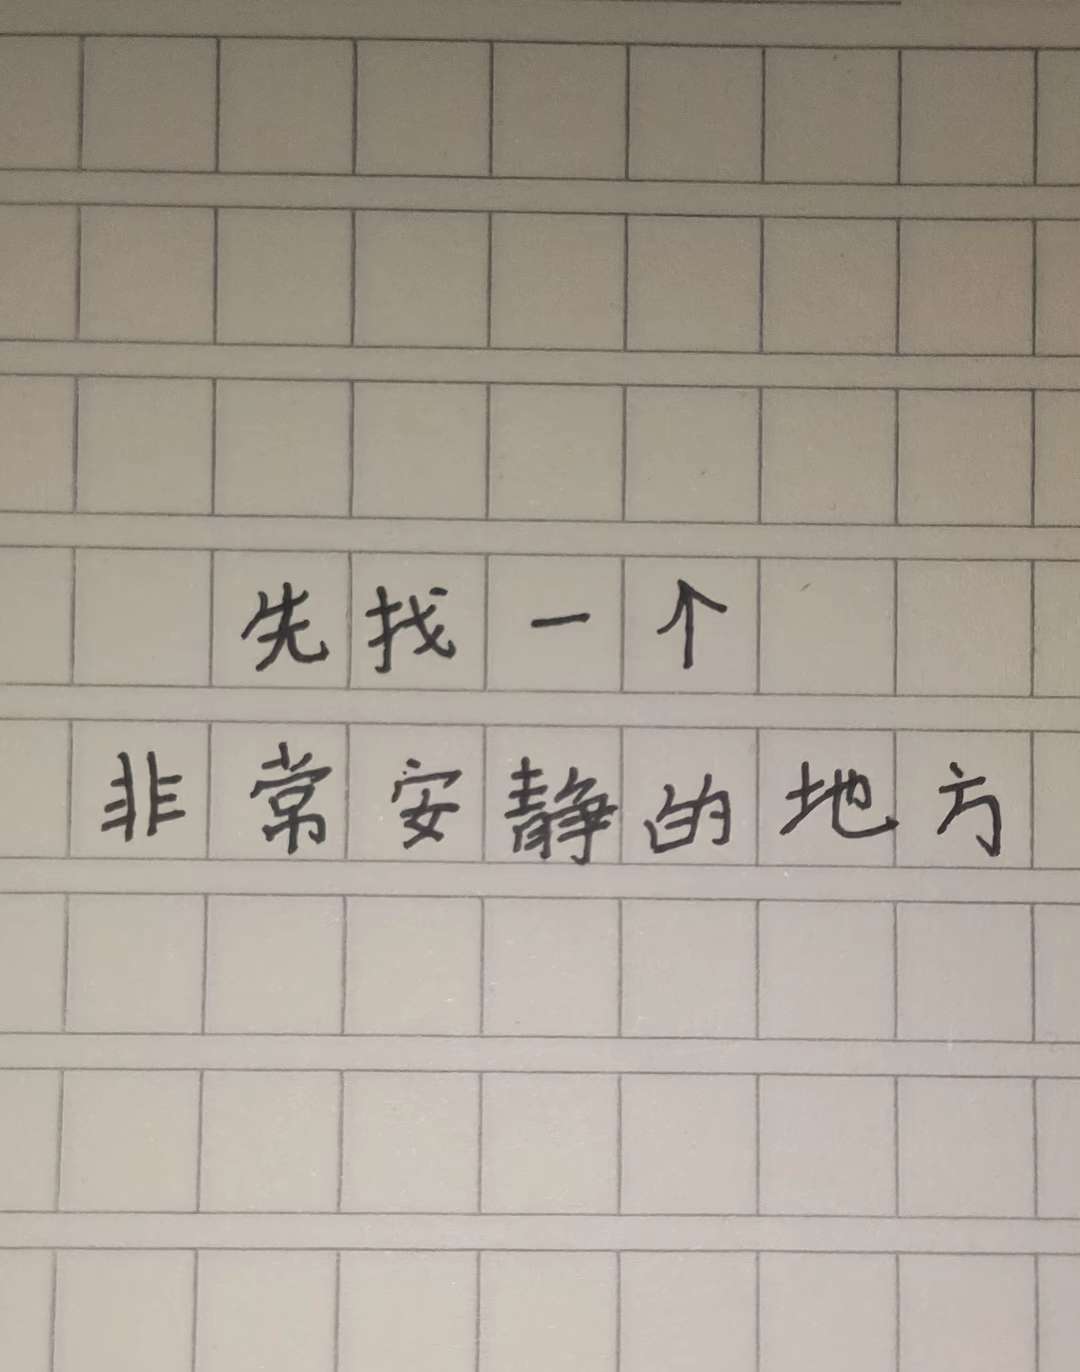 先找一个
非常安静的地方